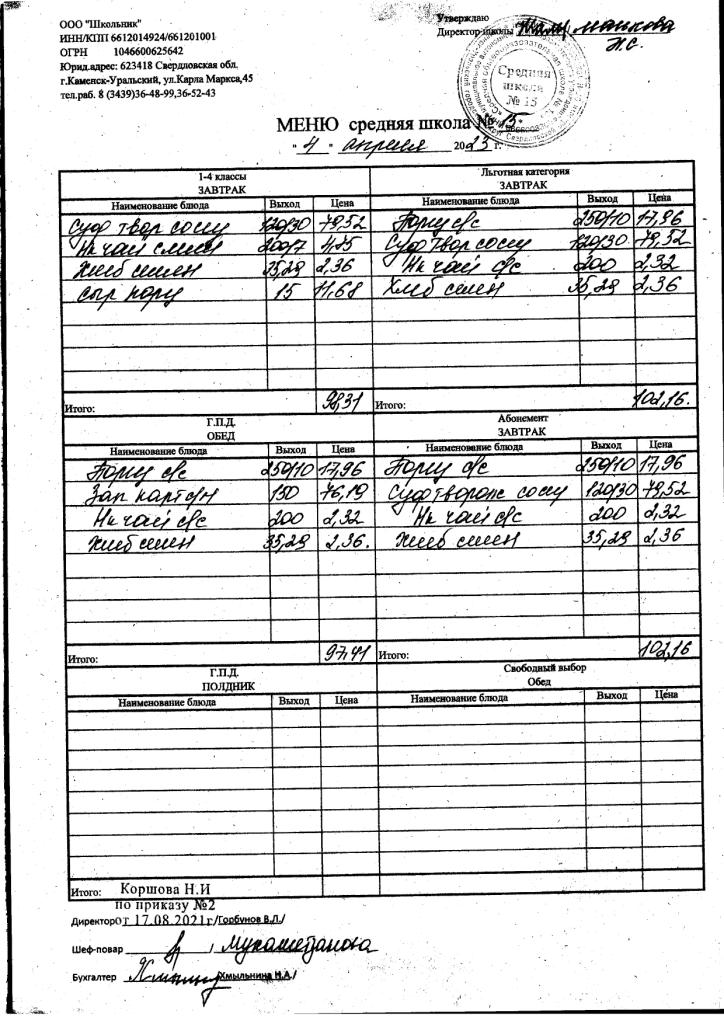 ООО "Школьник"
ИНН/КПП 6612014924/661201001
ОГРН 1046600625642
Юрид.адрес: 623418 Свердловская обл.
г.Каменск-Уральский, ул.Карла Маркса,45
тел.раб. 8 (3439)36-48-99,36-52-43
Утверждаю
Директор школы
Н.С.
Средняя
школа
№ 15
МЕНЮ средняя школа № 15
" 4 " апреля 2023 г.
1-4 классы
ЗАВТРАК
Наименование блюда Выход Цена
Суф твор сгущ 120/30 79,52
Нк чай слим 200/7 4,75
Хлеб 35,29 2,36
Сыр порц 15 11,68
Итого: 98,31
Льготная категория
ЗАВТРАК
Наименование блюда Выход Цена
Борщ с/с 250/10 17,96
Суф твор сгущ 120/30 79,52
Нк чай с/с 200 2,32
Хлеб 35,29 2,36
Итого: 102,16.
Г.П.Д.
ОБЕД
Наименование блюда Выход Цена
Борщ с/с 250/10 17,96
Зап карт с/п 150 76,19
Нк чай с/с 200 2,32
Хлеб 35,29 2,36.
Итого: 97,41
Абонемент
ЗАВТРАК
Наименование блюда Выход Цена
Борщ с/с 250/10 17,96
Суф творож сгущ 120/30 79,52
Нк чай с/с 200 2,32
Хлеб 35,29 2,36
Итого: 102,16
Г.П.Д.
ПОЛДНИК
Наименование блюда Выход Цена
Итого:
Свободный выбор
Обед
Наименование блюда Выход Цена
Коршова Н.И
по приказу №2
Директор от 17.08.2021г/Горбунов В.Л./
Шеф-повар / Мухаметданова
Бухгалтер /Хмыльнина Н.А./